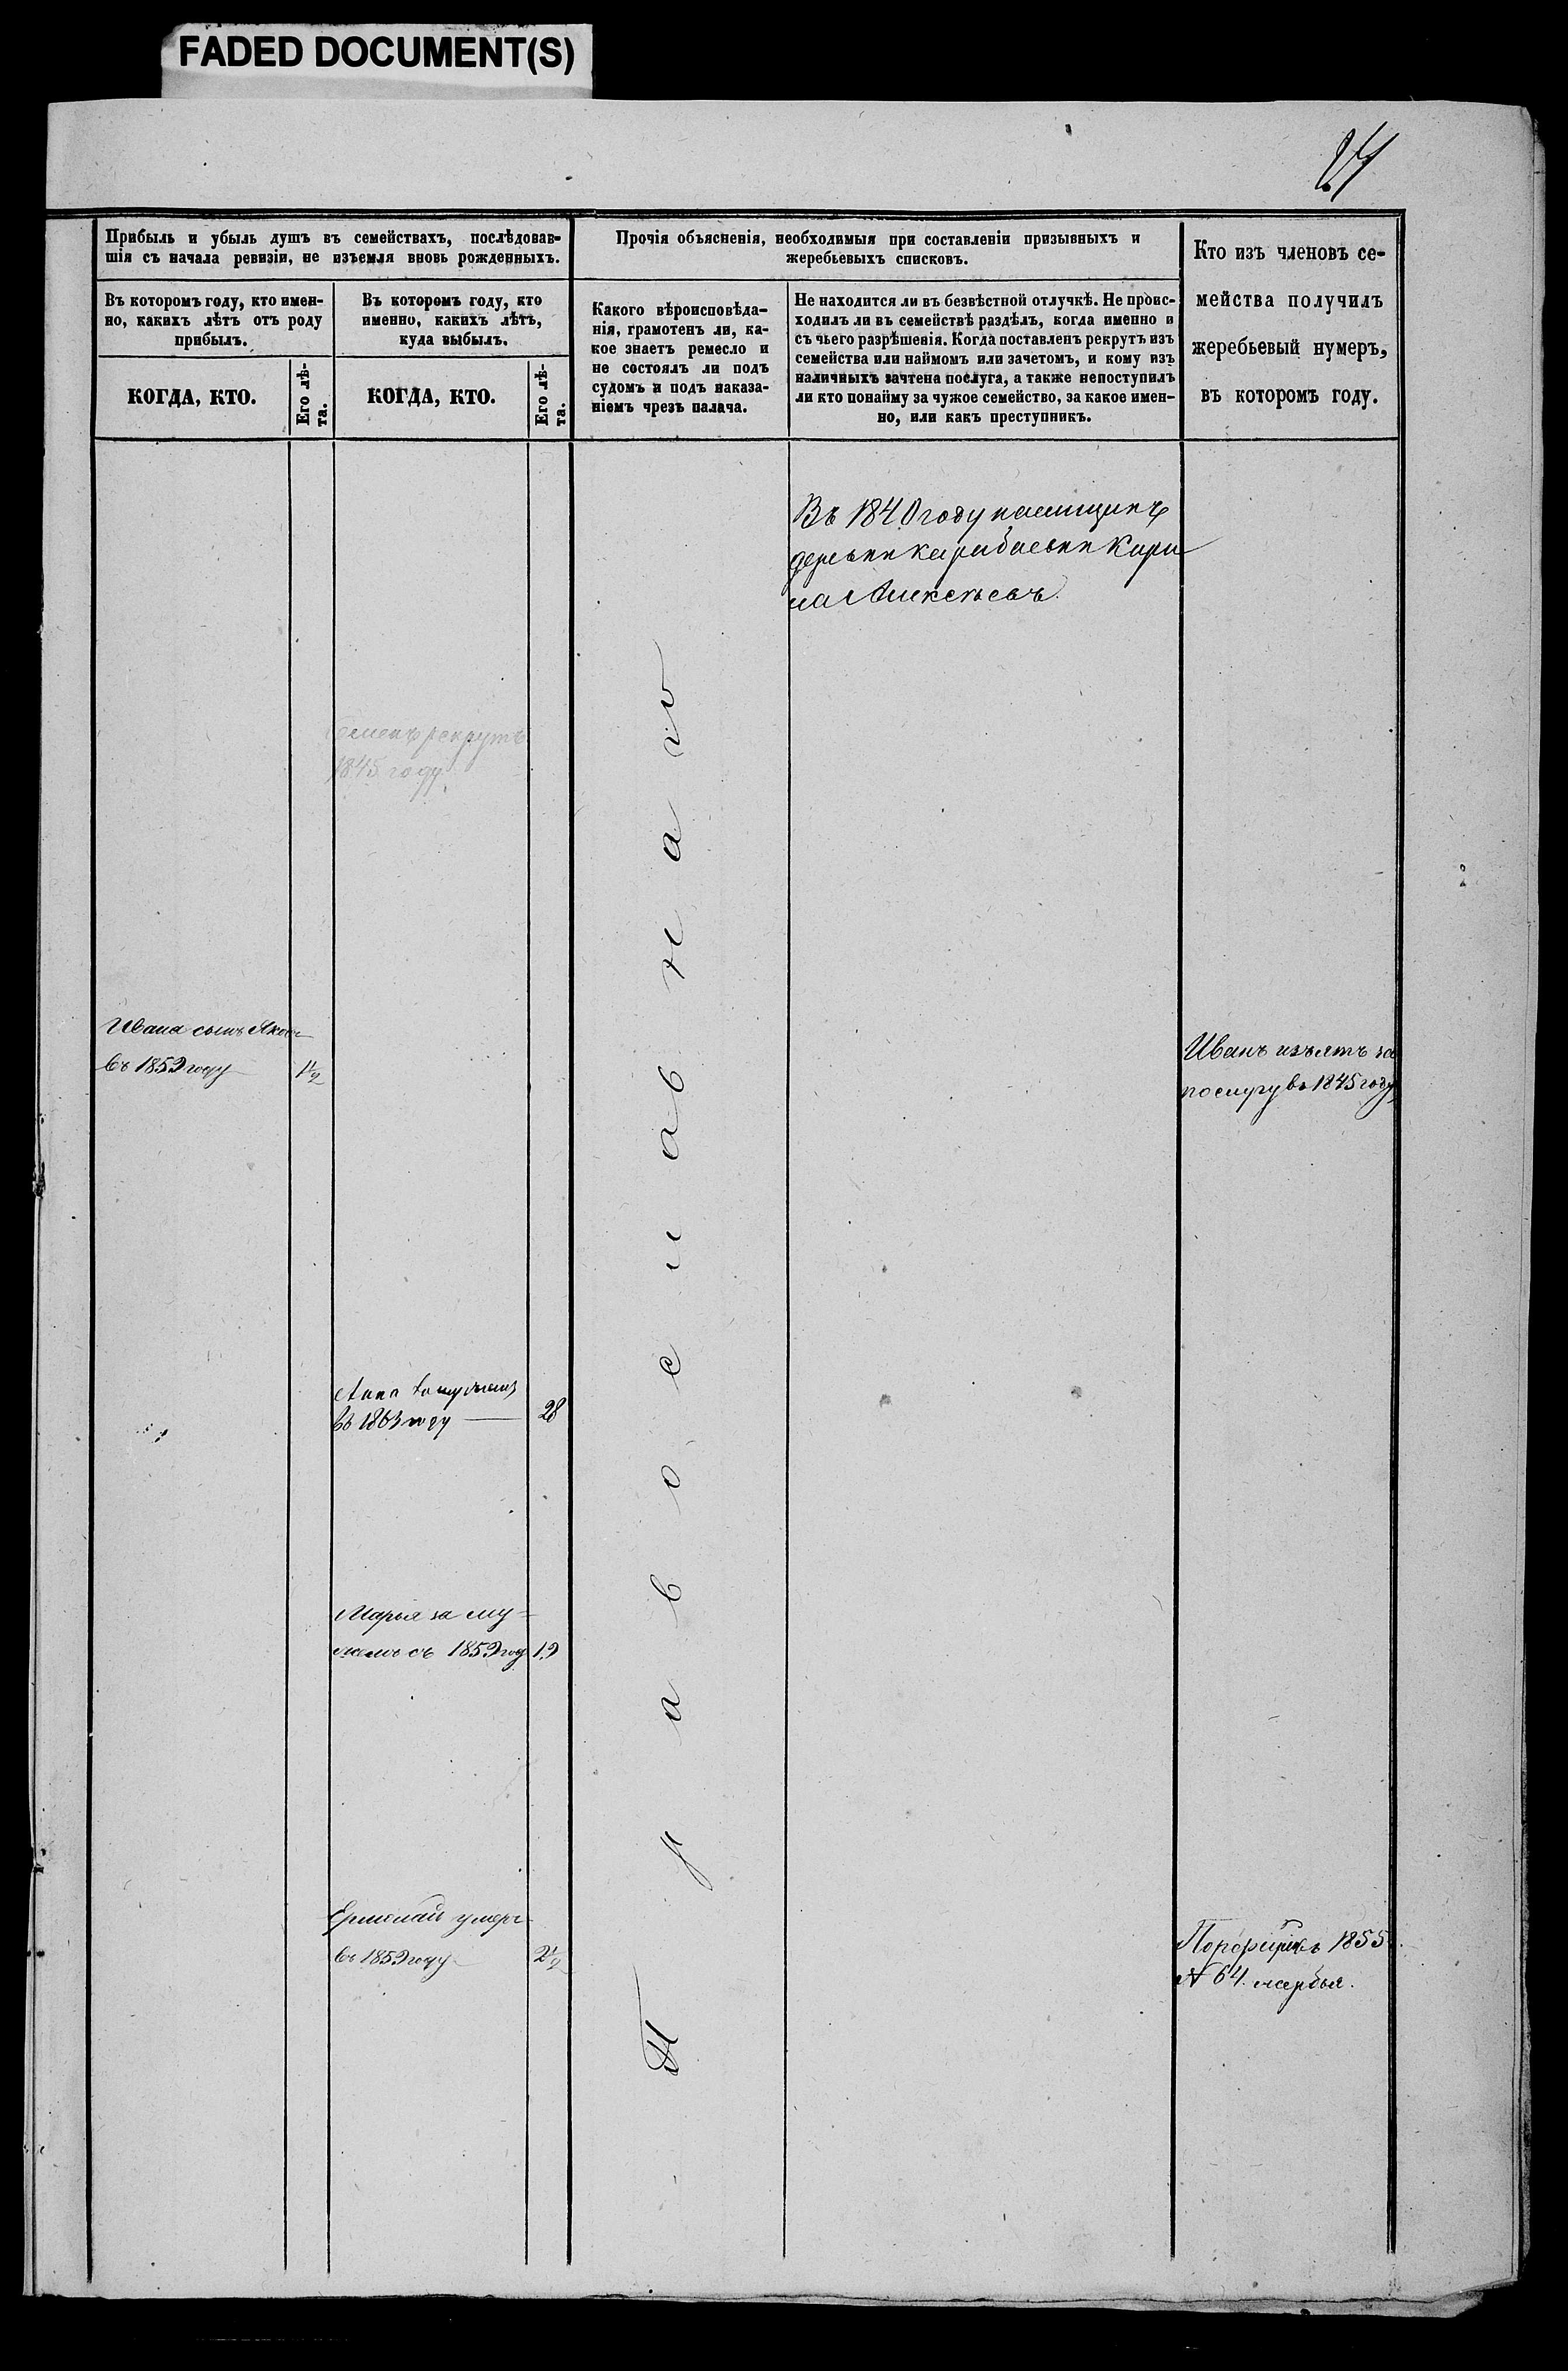 FADED DOCUMENT(S)
Прибыль и убыль душъ въ семействахъ, послѣдовав-
шія съ начала ревизіи, не изъемля вновь рожденныхъ.
Прочія объясненія, необходимыя при составленіи призывныхъ и
жеребьевыхъ списковъ.
Кто изъ членовъ се-
мейства получилъ
жеребьевый нумеръ,
въ которомъ году.
Въ которомъ году, кто имен-
но, какихъ лѣтъ отъ роду
прибылъ.
Въ которомъ году, кто
именно, какихъ лѣтъ,
куда выбылъ.
Какого вѣроисповѣда-
нія, грамотенъ ли, ка-
кое знаетъ ремесло и
не состоялъ ли подъ
судомъ и подъ наказа-
ніемъ чрезъ палача.
Не находится ли въ безвѣстной отлучкѣ. Не проис-
ходилъ ли въ семействѣ раздѣлъ, когда именно и
съ чьего разрѣшенія. Когда поставленъ рекрутъ изъ
семейства или наймомъ или зачетомъ, и кому изъ
наличныхъ зачтена послуга, а также непоступилъ
ли кто понайму за чужое семейство, за какое имен-
но, или какъ преступникъ.
КОГДА, КТО.
Его лѣ-
та.
КОГДА, КТО.
Его лѣ-
та.
Въ 1840 году наемщикъ
деревни
Алексѣевъ.
Семенъ рекрутъ
1845 году
Православнаго
Ивана сынъ Яковъ
въ 1859 году 1½
Иванъ изъятъ за
послугу въ 1845 году
Анна замужемъ
въ 1863 году 28
Марья за му-
жемъ съ 1859 году 19
Ермолай умеръ
въ 1859 году 2½
Порфирій въ 1855 г.
№ 64. жеребья.